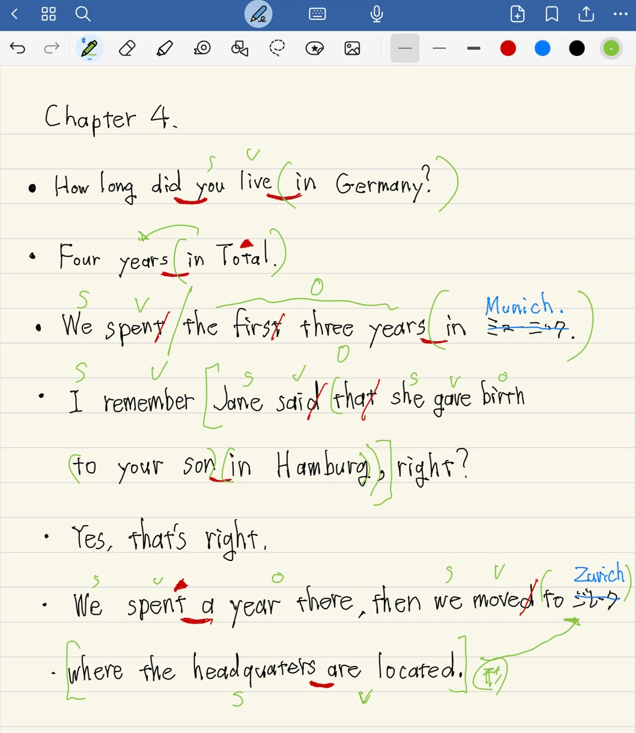 Chapter 4.
S V
• How long did you live (in Germany?)
• Four years (in Total.)
S V O Munich.
• We spent / the first three years (in ミューニック.)
S V O
S V S V O
• I remember [Jane said (that she gave birth
(to your son) (in Hamburg)), ] right?
• Yes, that's right.
S V O S V Zurich
• We spent a year there, then we moved (to
• [where the headquaters are located.]
S V